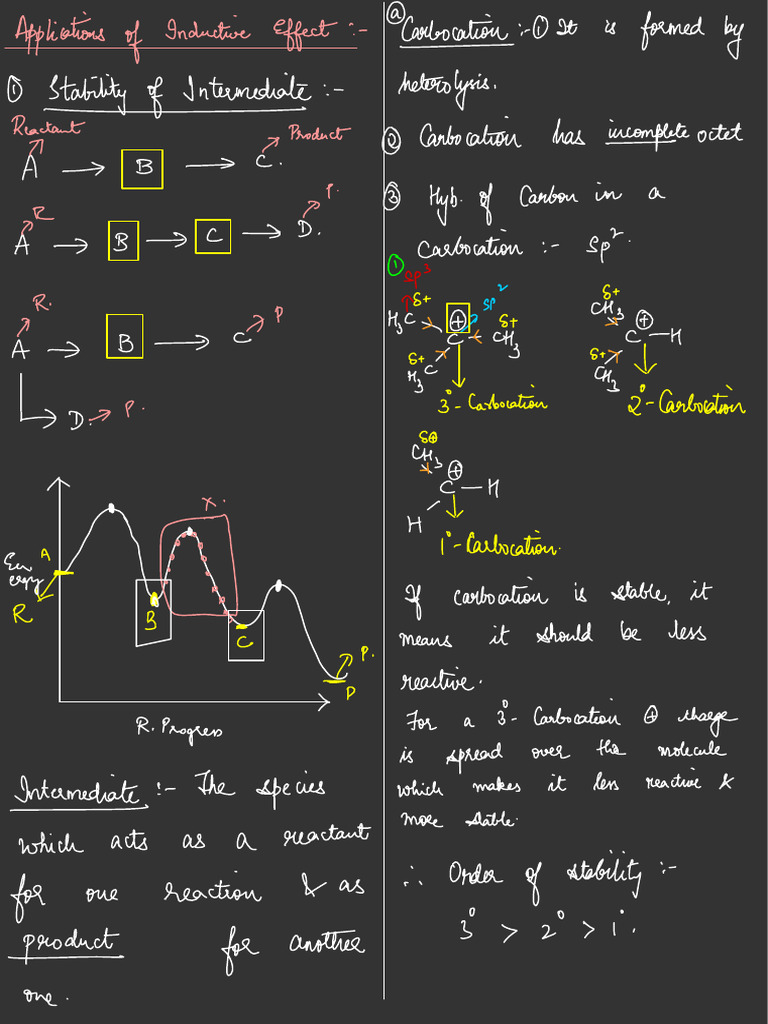 Applications of Inductive Effect :-
① Stability of Intermediate :-
Reactant
Product
A → B → C.
R
P.
A → B → C → D.
R.
P
A → B → C
D. → P.
X.
Energy
A
R
B
C
P.
D
R. Progress
Intermediate :- The species
which acts as a reactant
for one reaction & as
product for another
one.
ⓐ Carbocation :- ① It is formed by
heterolysis.
② Carbocation has incomplete octet
③ Hyb. of Carbon in a
Carbocation :- Sp².
①
Sp³
δ+
⊕
sp²
H₃C
C
δ+
CH₃
δ+
H₃C
3°-Carbocation
δ+
CH₃
⊕
C — H
δ+
CH₃
2°-Carbocation
δ⊕
CH₃
⊕
C — H
H
1°-Carbocation.
If carbocation is stable, it
means it should be less
reactive.
For a 3°- Carbocation ⊕ charge
is spread over the molecule
which makes it less reactive &
more stable.
∴ Order of stability :-
3° > 2° > 1°.